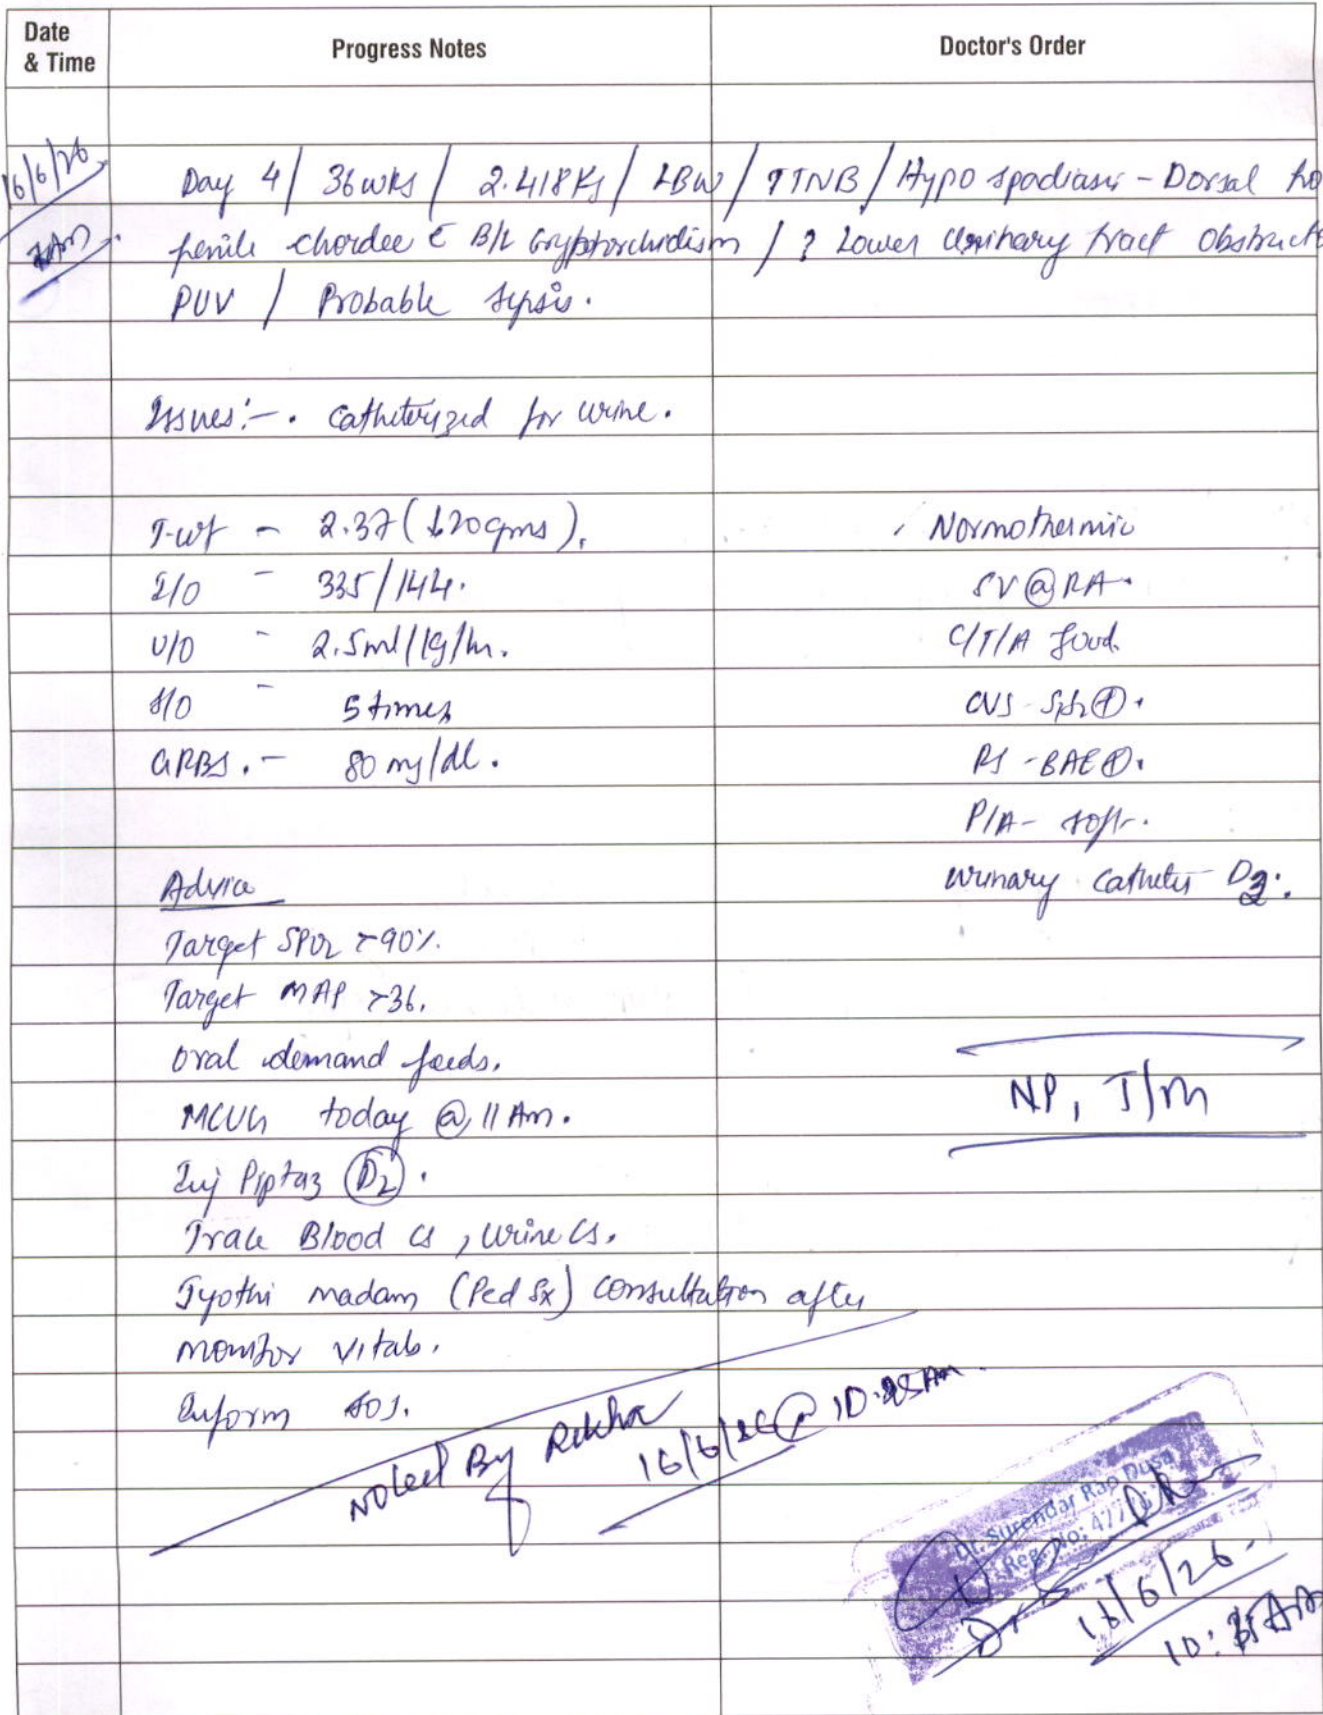 Date & Time
Progress Notes
Doctor's Order
16/6/26
Day 4 / 36 wks / 2.418 Kg / LBW / TTNB / Hypospadiasis - Dorsal ho
7AM
penile chordee c̄ B/L Cryptorchidism / ? Lower Urinary tract Obstruct
PUV / Probable Sepsis.
Issues:- . Catheterized for urine.
T-wt - 2.37 (↓20gms).
Normothermic
I/O - 335/144.
SV @ RA.
U/O - 2.5ml/kg/hr.
C/T/A Good.
S/O - 5 times
CVS - S1S2 ⊕.
GRBS. - 80 mg/dl.
RS - BAE ⊕.
P/A - soft.
Advice
urinary catheter D3.
Target SPO2 >90%.
Target MAP >36.
Oral demand feeds.
MCUG today @ 11 Am.
NP, T/m
Inj Piptaz D2.
Trace Blood Cs, Urine Cs.
Jyothi madam (Ped Sx) Consultation after
Monitor Vitals.
Inform SOS.
Noted By Rekha
16/6/26 @ 10:
Dr. Surendar Rao Dusa
Reg. No:
Dr
16/6/26
10: